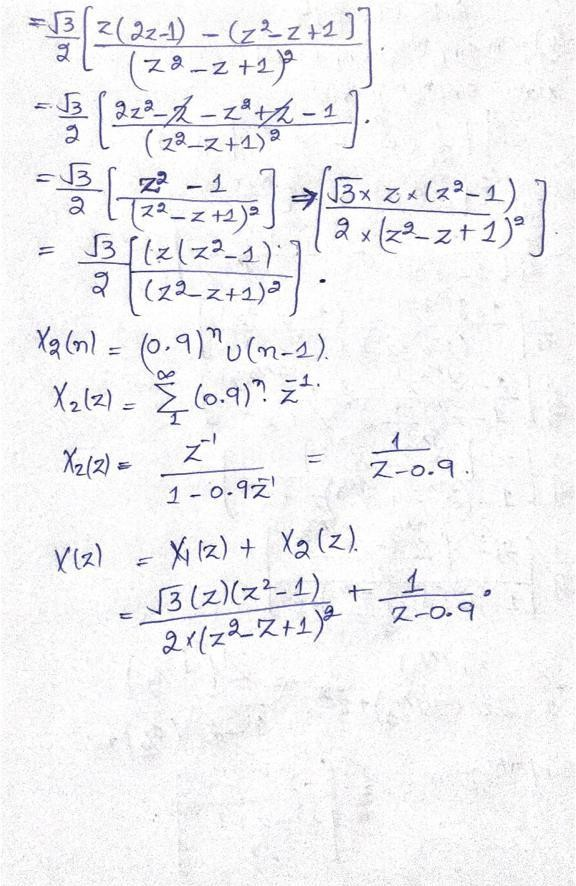 = √3/2 [ z(2z-1) - (z²-z+1) / (z²-z+1)² ].
= √3/2 [ 2z²-z-z²+z-1 / (z²-z+1)² ].
= √3/2 [ z²-1 / (z²-z+1)² ] ⇒ [ √3 × z × (z²-1) / 2 × (z²-z+1)² ].
= √3/2 [ (z(z²-1) / (z²-z+1)² ].
X₂(n) = (0.9)ⁿ u(n-1).
X₂(z) = ∞Σ1 (0.9)ⁿ. z⁻¹.
X₂(z) = z⁻¹ / 1-0.9z⁻¹ = 1 / z-0.9.
X(z) = X₁(z) + X₂(z).
= √3(z)(z²-1) / 2×(z²-z+1)² + 1 / z-0.9.